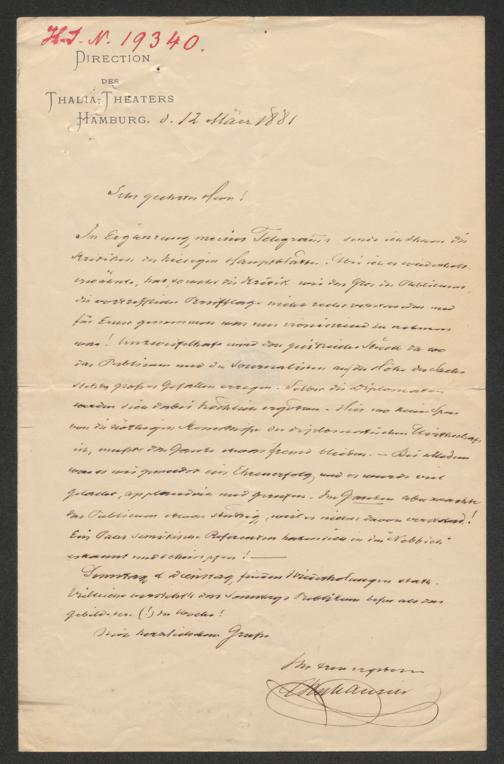 H.I.N. 19340.
DIRECTION
DES
THALIA-THEATERS
HAMBURG. d. 12 März 1881
Sehr geehrter Herr!
In Ergänzung meines Telegramms sende ich Ihnen die
Kritiken der hiesigen Hauptblätter. Wie ich es wiederholt
erwähnte, hat sowohl die Kritik wie das Gros des Publicums
die vortreffliche Persiflage nicht recht verstanden und
für Ernst genommen was nur ironisirend zu nehmen
war! Unzweifelhaft wird das geistreiche Stück da wo
das Publicum und die Journalisten auf der Höhe der Sache
stehen großes Gefallen erregen. Selbst die Diplomaten
werden sich dabei köstlich ergötzen. Hier wo keine Spur
von der nöthigen Kenntniß der diplomatischen Wirthschaft
ist, mußte das Ganze etwas fremd bleiben. — Bei alledem
war es ein Ehrenerfolg, und es wurde viel
gelacht, applaudirt und gerufen. Im Ganzen aber machte
das Publicum etwas stutzig, weil es nichts davon verstand!
Ein Paar semitische Referenten haben sich in "Nebbich"
erkannt und schimpfen! —
Sonntag & Dienstag finden Wiederholungen statt.
Vielleicht versteht's das Sonntags Publikum besser als das
gebildetere (!) der Woche!
Mit herzlichstem Gruße
Ihr treu ergebener